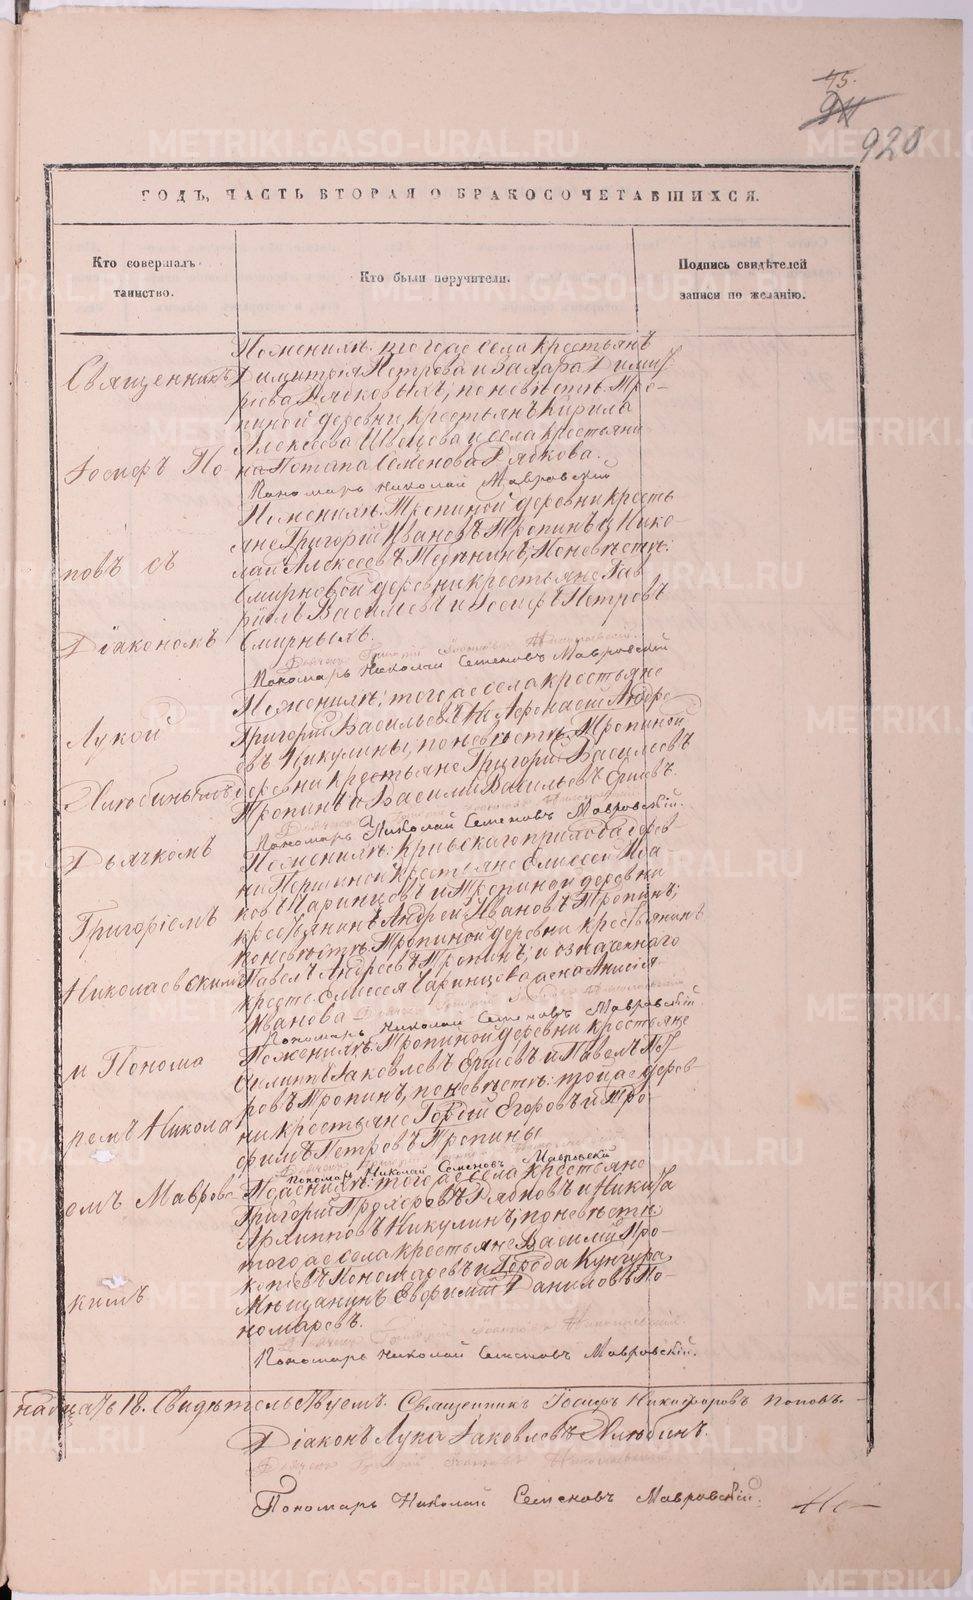 45.
920
ГОДЪ, ЧАСТЬ ВТОРАЯ О БРАКОСОЧЕТАВШИХСЯ.
Кто совершалъ таинство.
Кто были поручители.
Подпись свидѣтелей записи по желанію.
Священникъ
Іосифъ По-
повъ съ
Діакономъ
Лукой
Хлюбинымъ
Дьячкомъ
Григоріемъ
Николаевскимъ
и Понома
ремъ Никола
емъ Мавров
кимъ
По женихѣ: того же села крестьянѣ
Димитрія Петрова и Захара Димит
ріева Рябковыхъ; по невѣстѣ: Тро-
пиной деревни крестьянъ Кирила
Алексѣева Швецова и села крестьяни
на Потапа Семенова Рябкова.
Пономарь Николай Мавровскій
По женихѣ: Тропиной деревни кресть
яне Григорій Ивановъ Тропинъ и Нико-
лай Алексѣевъ по невѣстѣ:
Смирновой деревни крестьяне Гав
ріилъ Васильевъ и Іосифъ Петровъ
Смирныхъ.
Пономарь Николай Семеновъ Мавровскій
По женихѣ: того же села крестьяне
Григорій Васильевъ и Аѳанасій Андре-
евъ Никулины, по невѣстѣ: Тропиной
деревни крестьяне Григорій Васильевъ
Тропинъ и Василій Васильевъ Ершевъ.
Пономарь Николай Семеновъ Мавровскій.
По женихѣ: прихода дерев-
ни крестьяне Елисей Ива
новъ Чаринцовъ и Тропиной деревни
крестьянинъ Андрей Ивановъ Тропинъ;
по невѣстѣ: Тропиной деревни крестьянинъ
Павелъ Андреевъ Тропинъ; и означеннаго
крест. Елисея Чаринцова жена Анисія
Иванова
Пономарь Николай Семеновъ Мавровскій.
По женихѣ: Тропиной деревни крестьяне
Филиппъ Яковлевъ Ершевъ и Павелъ Пет
ровъ Тропинъ, по невѣстѣ: той же дерев-
ни крестьяне Гордій Егоровъ и Тро-
фимъ Петровъ Тропины
Пономарь Николай Семеновъ Мавровскій
По женихѣ: того же села крестьяне
Григорій Прохоровъ Рябковъ и Никита
Архиповъ Никулинъ; по невѣстѣ
того же села крестьяне Василій Про-
копьевъ Пономаревъ и Города Кунгура
Мѣщанинъ Ефримій Даниловъ По-
номаревъ.
Пономарь Николай Семеновъ Мавровскій.
надцать 18. Свидѣтельствуемъ. Священникъ Іосифъ Никифоровъ Поповъ.
Діаконъ Лука Яковлевъ Хлюбинъ.
Пономарь Николай Семеновъ Мавровскій.
METRIKI.GASO-URAL.RU